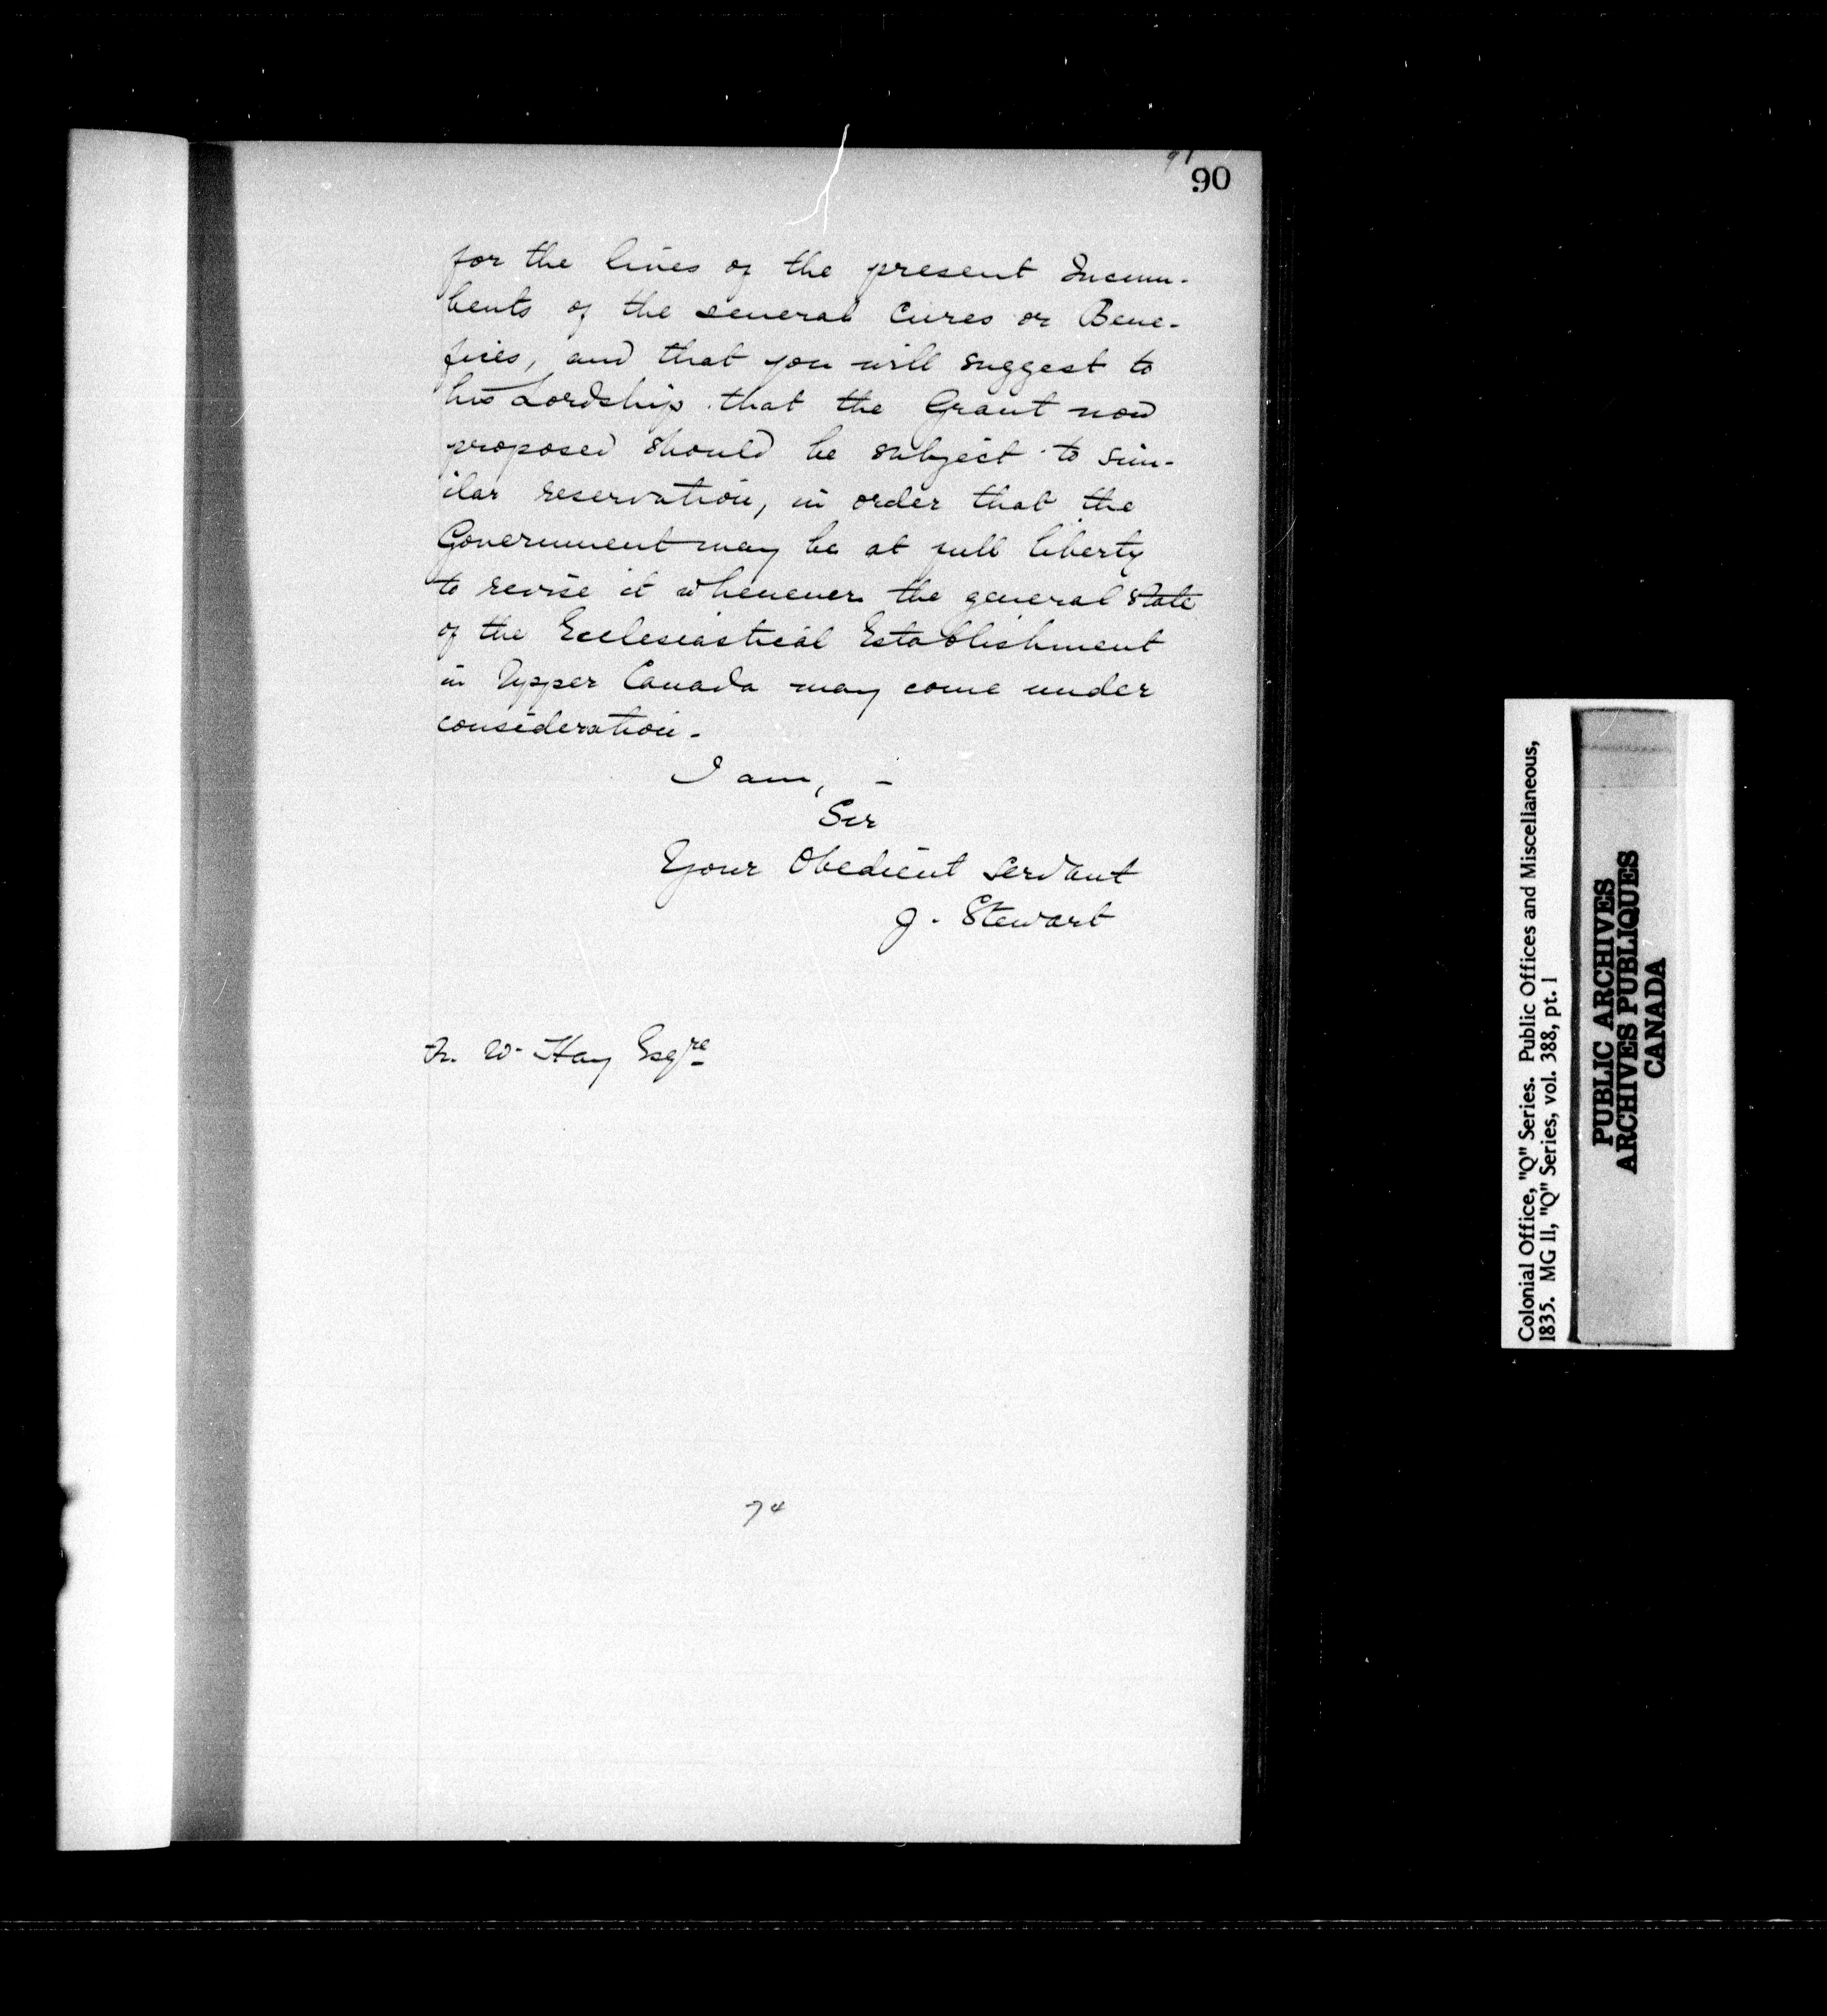 91
90
for the lives of the present Incum-
bents of the several Cures or Bene-
fices, and that you will suggest to
his Lordship that the Grant now
proposed should be subject to sim-
ilar reservation, in order that the
Government may be at full liberty
to revise it whenever the general state
of the Ecclesiastical Establishment
in Upper Canada may come under
consideration.
I am, -
Sir
Your Obedient Servant
J. Stewart
W. Hay Esqre
74
Colonial Office, "Q" Series. Public Offices and Miscellaneous,
1835. MG 11, "Q" Series, vol. 388, pt. 1
PUBLIC ARCHIVES
ARCHIVES PUBLIQUES
CANADA